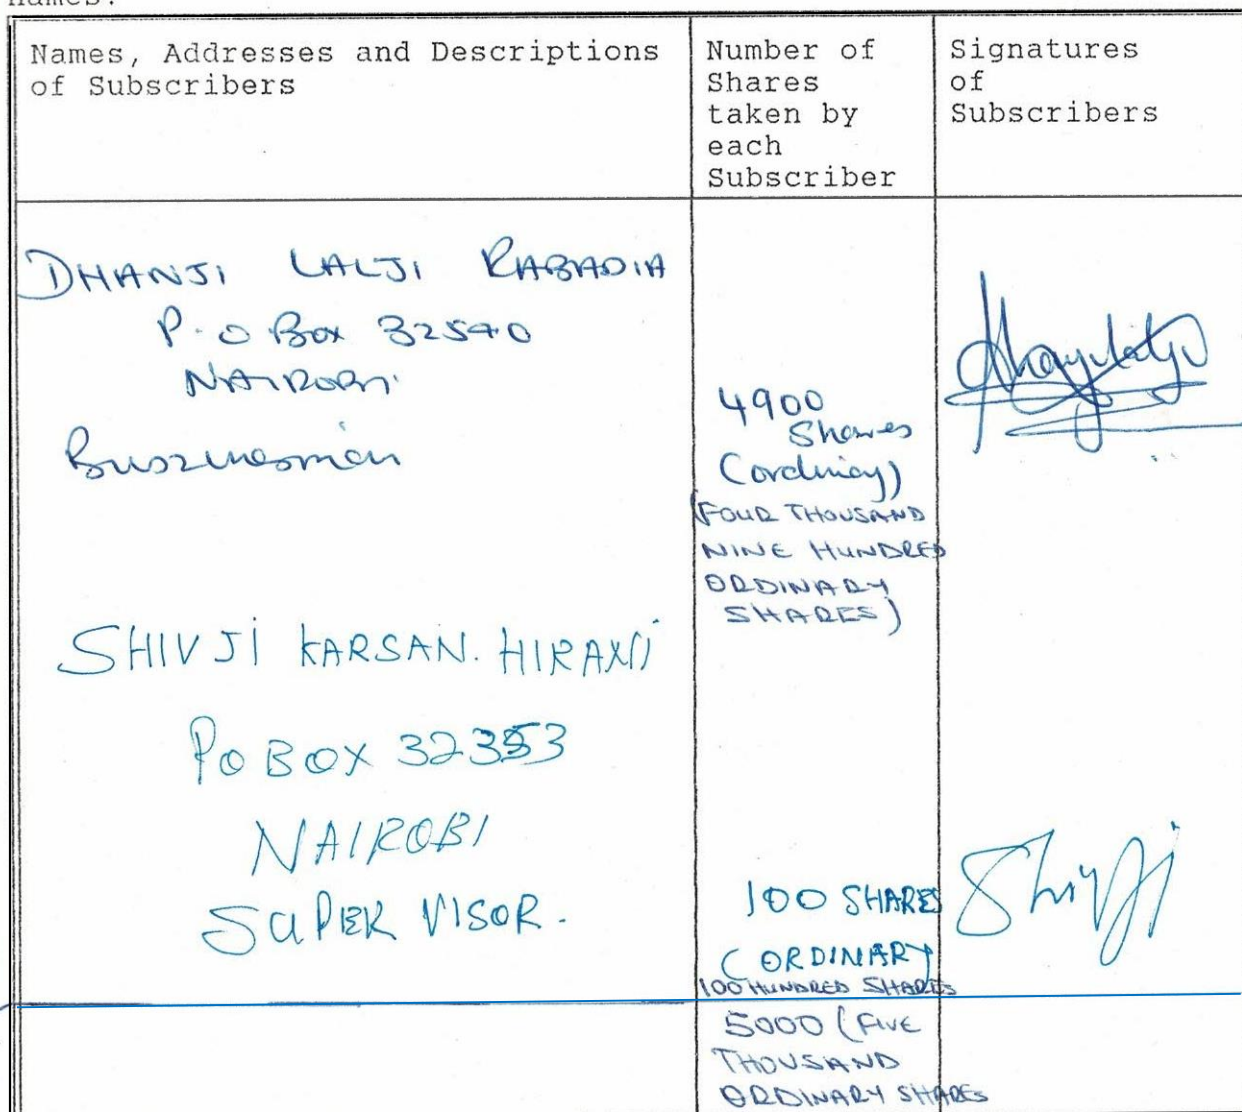 Names, Addresses and Descriptions
of Subscribers
Number of
Shares
taken by
each
Subscriber
Signatures
of
Subscribers
DHANJI LALJI RABADIA
P.O Box 32540
NAIROBI
Businessman
4900
Shares
(ordinary)
(FOUR THOUSAND
NINE HUNDRED
ORDINARY
SHARES)
SHIVJI KARSAN. HIRANI
PO BOX 32353
NAIROBI
SUPER VISOR.
100 SHARES
(ORDINARY
100 HUNDRED SHARES
Shivji
5000 (FIVE
THOUSAND
ORDINARY SHARES